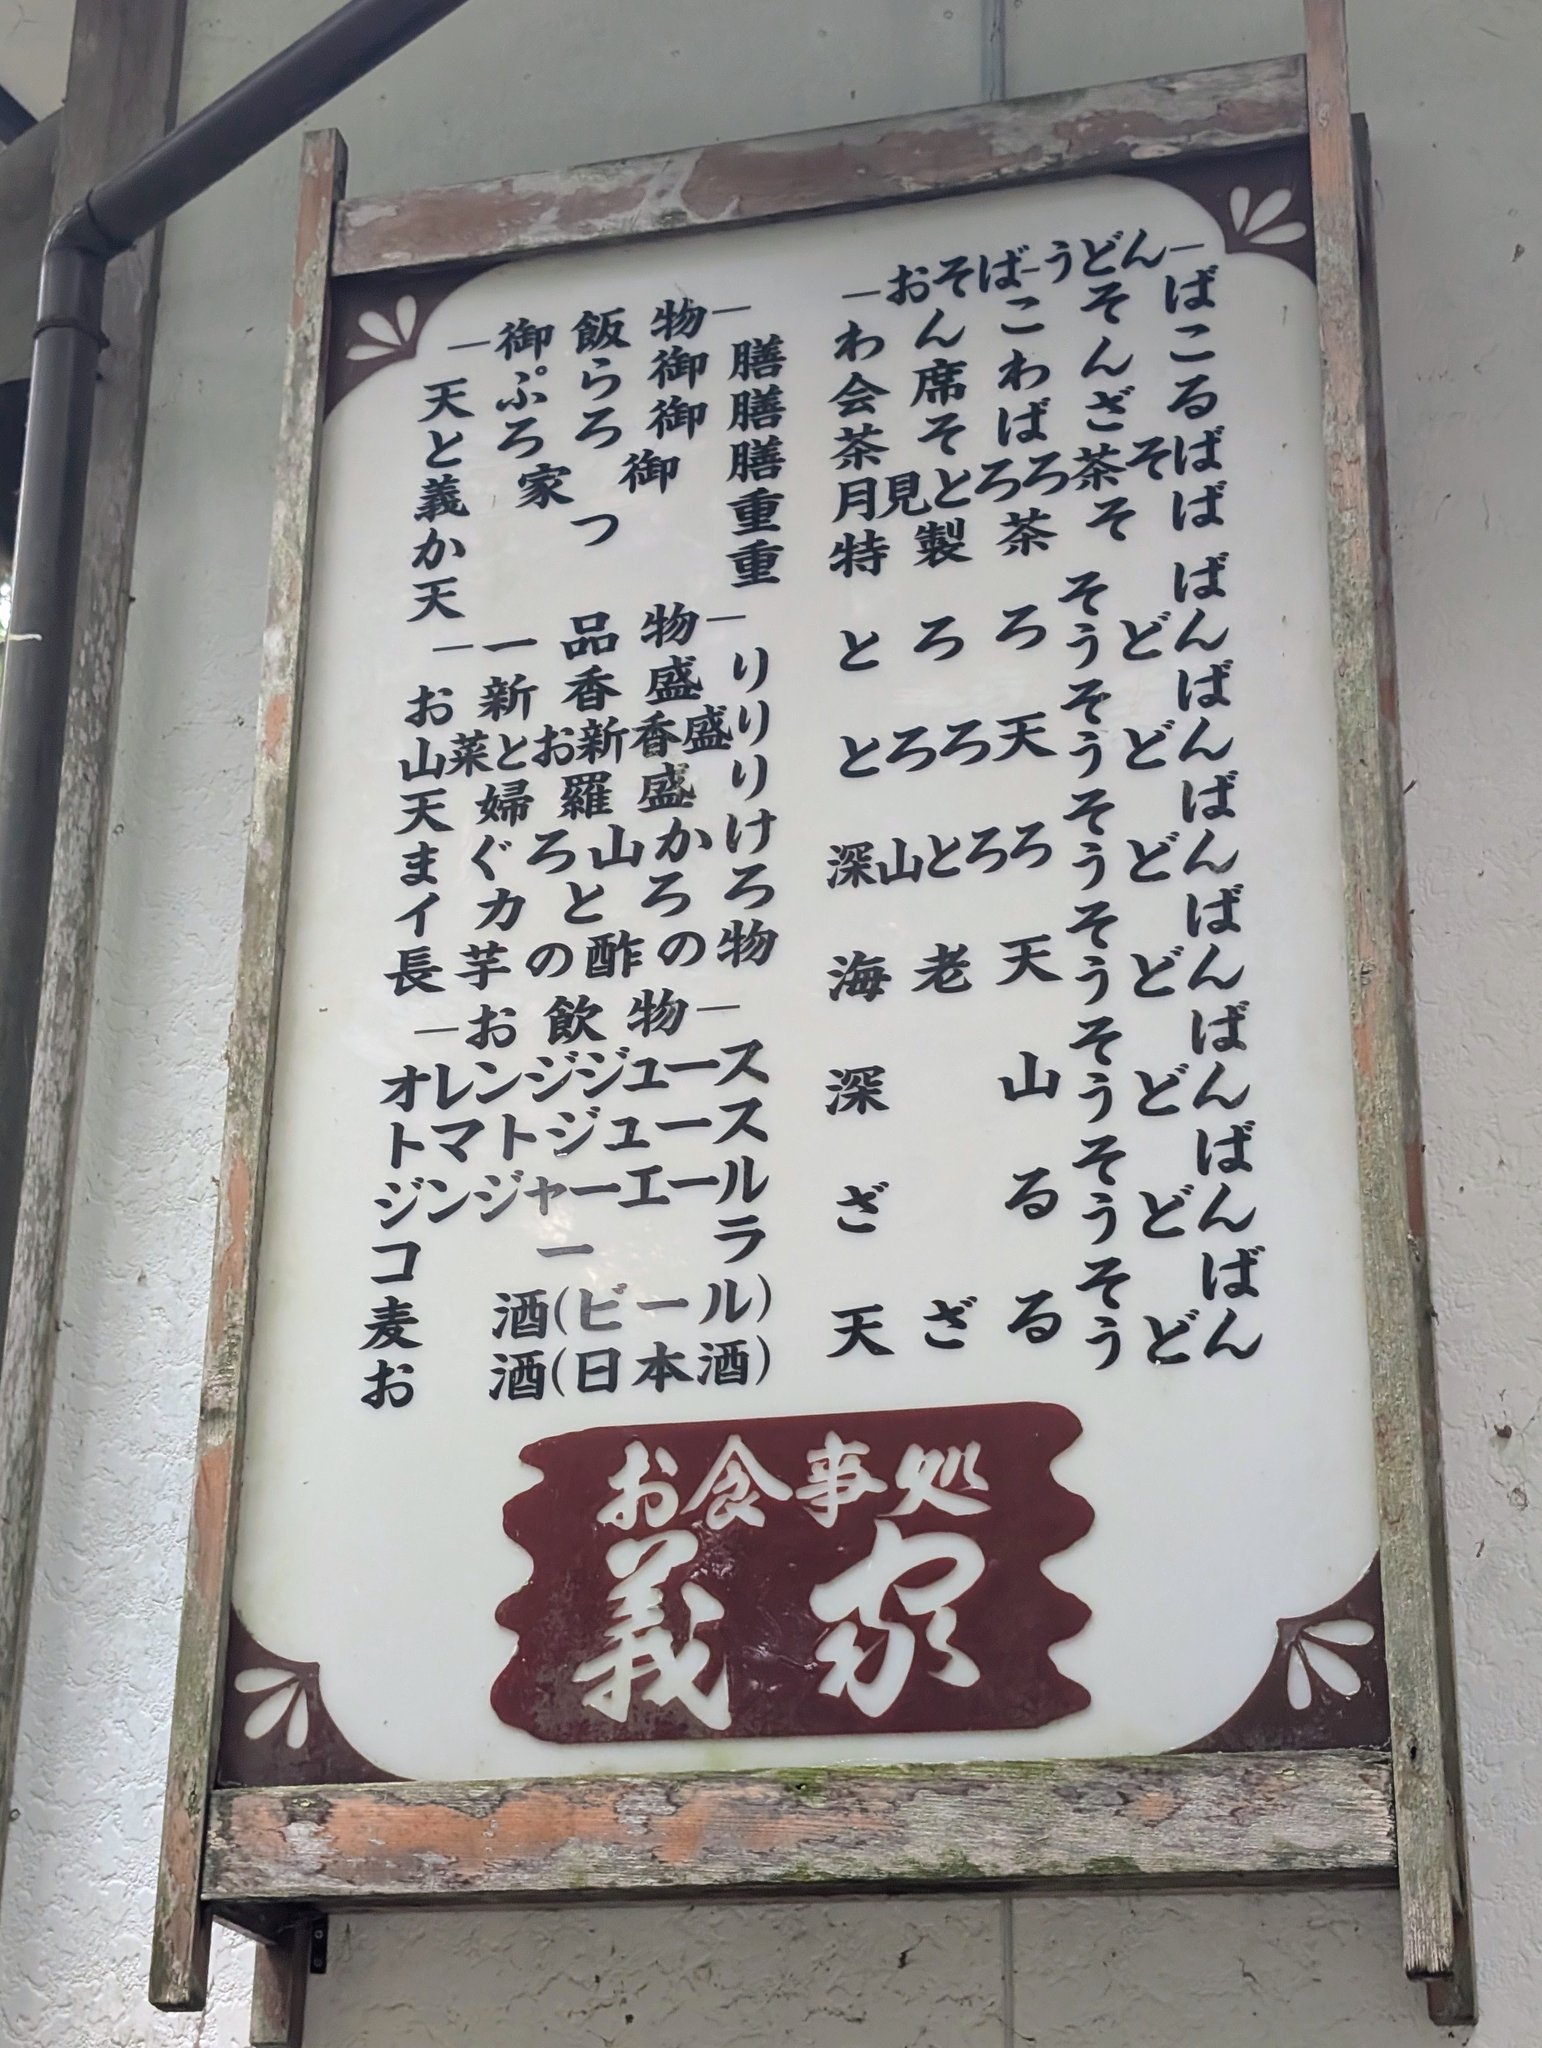 −おそば−うどん−
わんこそば
会席わんこ
茶そばざる
月見とろろ茶そば
特製茶そば
とろろ そば うどん
とろろ天 そば うどん
深山とろろ そば うどん
海老天 そば うどん
深山 そば うどん
ざる そば うどん
天ざる そば うどん
−御飯物−
天ぷら御膳
とろろ御膳
義家御膳
かつ重
天重
−一品物−
お新香盛り
山菜とお新香盛り
天婦羅盛り
まぐろ山かけ
イカとろろ
長芋の酢の物
−お飲物−
オレンジジュース
トマトジュース
ジンジャーエール
コーラ
麦酒(ビール)
お酒(日本酒)
お食事処
義家